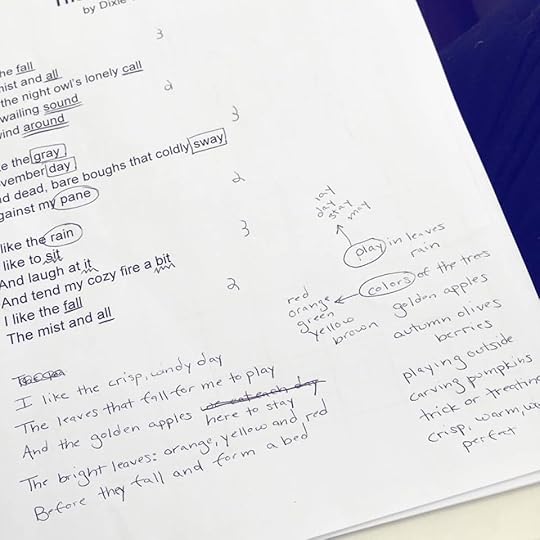 by Dixie
3
he fall
mist and all
the night owl's lonely call
wailing sound
2
wind around
3
e the gray
vember day
d dead, bare boughs that coldly sway
2
gainst my pane
3
like the rain
like to sit
And laugh at it
And tend my cozy fire a bit
2
I like the fall
The mist and all
lay
day
stay
may
play in leaves
rain
colors of the trees
red
orange
green
yellow
brown
golden apples
autumn olives
berries
playing outside
carving pumpkins
trick or treating
crisp, warm,
perfect
I like the crisp, windy day
The leaves that fall for me to play
And the golden apples we eat each day here to stay
The bright leaves: orange, yellow and red
Before they fall and form a bed